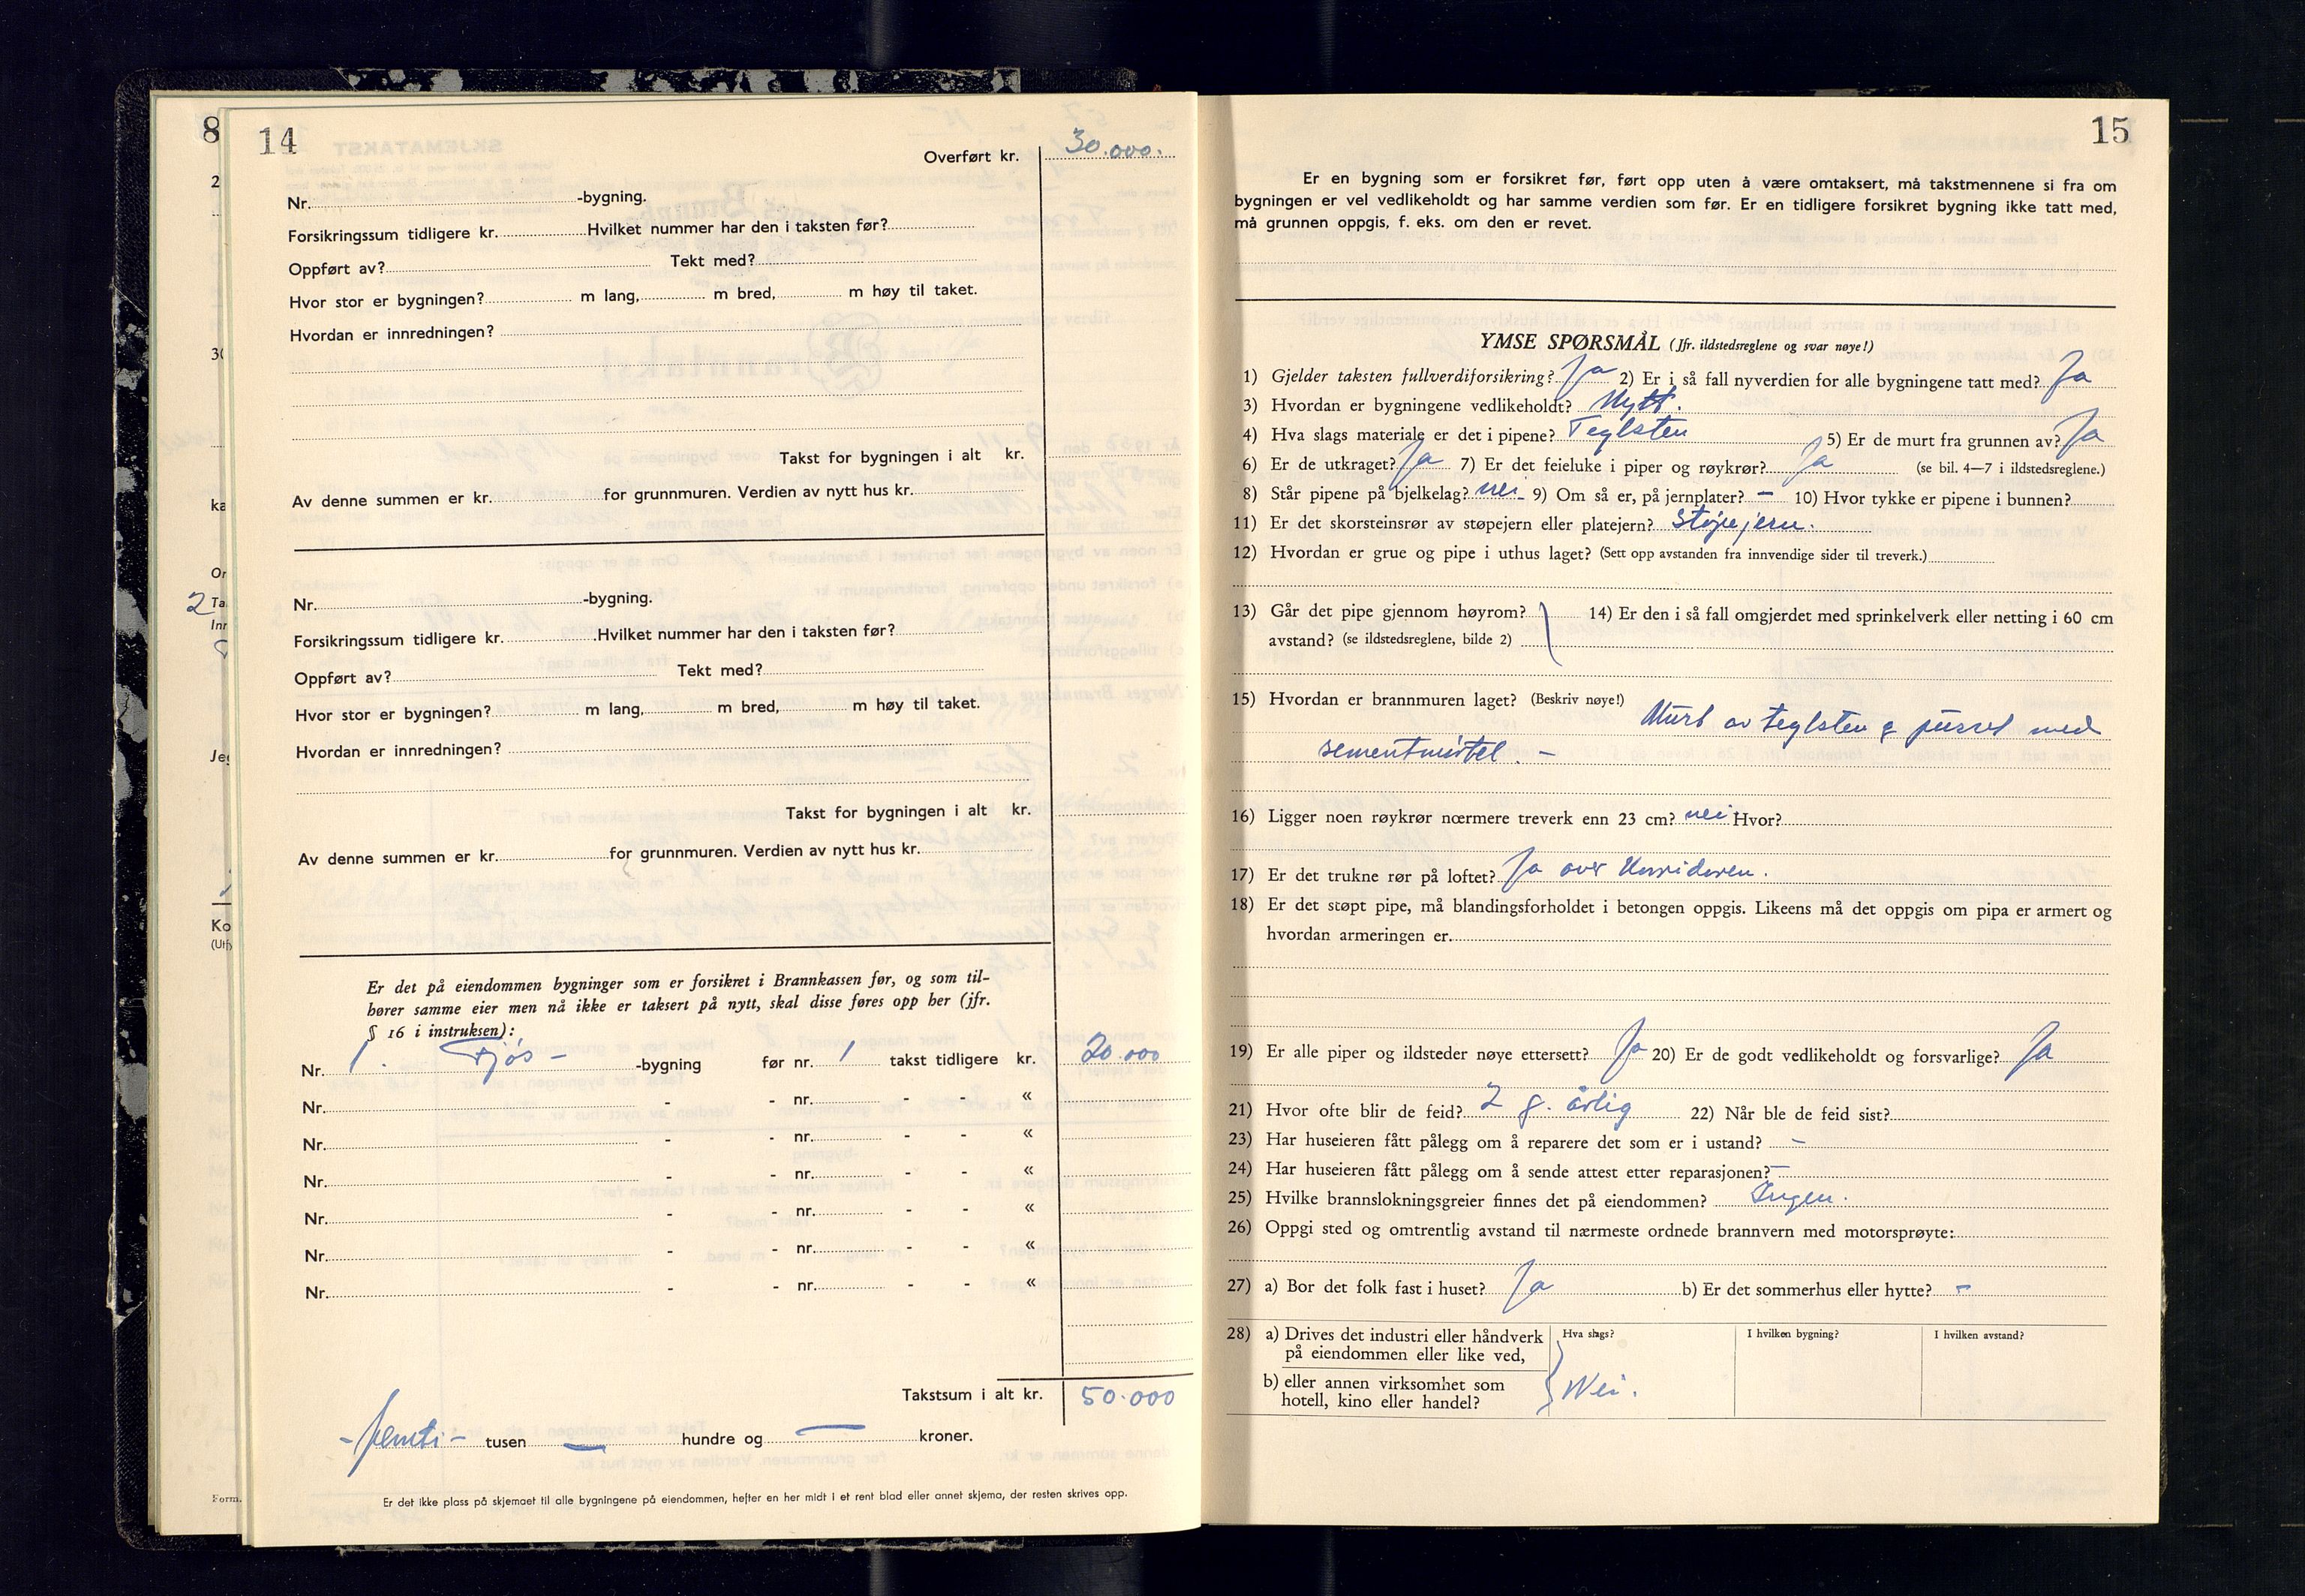 8
2
3(
ka
Or
2 Ta
Inr
Je
Ko
(Utf
Form.
14
Overført kr. 30.000.
Nr. -bygning.
Forsikringssum tidligere kr. Hvilket nummer har den i taksten før?
Oppført av? Tekt med?
Hvor stor er bygningen? m lang, m bred, m høy til taket.
Hvordan er innredningen?
Takst for bygningen i alt kr.
Av denne summen er kr. for grunnmuren. Verdien av nytt hus kr.
Nr. -bygning.
Forsikringssum tidligere kr. Hvilket nummer har den i taksten før?
Oppført av? Tekt med?
Hvor stor er bygningen? m lang, m bred, m høy til taket.
Hvordan er innredningen?
Takst for bygningen i alt kr.
Av denne summen er kr. for grunnmuren. Verdien av nytt hus kr.
Er det på eiendommen bygninger som er forsikret i Brannkassen før, og som til-
hører samme eier men nå ikke er taksert på nytt, skal disse føres opp her (jfr.
§ 16 i instruksen):
Nr. 1. Fjøs - -bygning før nr. 1 takst tidligere kr. 20.000
Nr. - - nr. - - «
Nr. - - nr. - - «
Nr. - - nr. - - «
Nr. - - nr. - - «
Nr. - - nr. - - «
Nr. - - nr. - - «
Takstsum i alt kr. 50.000
- femti - tusen — hundre og — kroner.
Er det ikke plass på skjemaet til alle bygningene på eiendommen, hefter en her midt i et rent blad eller annet skjema, der resten skrives opp.
15
Er en bygning som er forsikret før, ført opp uten å være omtaksert, må takstmennene si fra om
bygningen er vel vedlikeholdt og har samme verdien som før. Er en tidligere forsikret bygning ikke tatt med,
må grunnen oppgis, f. eks. om den er revet.
YMSE SPØRSMÅL (Jfr. ildstedsreglene og svar nøye!)
1) Gjelder taksten fullverdiforsikring? Ja 2) Er i så fall nyverdien for alle bygningene tatt med? Ja
3) Hvordan er bygningene vedlikeholdt? Nytt.
4) Hva slags materiale er det i pipene? Teglsten 5) Er de murt fra grunnen av? Ja
6) Er de utkraget? Ja 7) Er det feieluke i piper og røykrør? Ja (se bil. 4—7 i ildstedsreglene.)
8) Står pipene på bjelkelag? nei - 9) Om så er, på jernplater? - 10) Hvor tykke er pipene i bunnen?
11) Er det skorsteinsrør av støpejern eller platejern? Støpejern.
12) Hvordan er grue og pipe i uthus laget? (Sett opp avstanden fra innvendige sider til treverk.)
13) Går det pipe gjennom høyrom? 14) Er den i så fall omgjerdet med sprinkelverk eller netting i 60 cm
avstand? (se ildstedsreglene, bilde 2)
15) Hvordan er brannmuren laget? (Beskriv nøye!) Murt av teglsten & pusset med
sementmørtel. -
16) Ligger noen røykrør nærmere treverk enn 23 cm? nei Hvor?
17) Er det trukne rør på loftet? Ja over Korridoren.
18) Er det støpt pipe, må blandingsforholdet i betongen oppgis. Likeens må det oppgis om pipa er armert og
hvordan armeringen er.
19) Er alle piper og ildsteder nøye ettersett? Ja 20) Er de godt vedlikeholdt og forsvarlige? Ja
21) Hvor ofte blir de feid? 2 g. årlig 22) Når ble de feid sist?
23) Har huseieren fått pålegg om å reparere det som er i ustand? -
24) Har huseieren fått pålegg om å sende attest etter reparasjonen? -
25) Hvilke brannslokningsgreier finnes det på eiendommen? Ingen.
26) Oppgi sted og omtrentlig avstand til nærmeste ordnede brannvern med motorsprøyte:
27) a) Bor det folk fast i huset? Ja b) Er det sommerhus eller hytte? -
28) a) Drives det industri eller håndverk Hva slags? I hvilken bygning? I hvilken avstand?
på eiendommen eller like ved,
b) eller annen virksomhet som Nei.
hotell, kino eller handel?